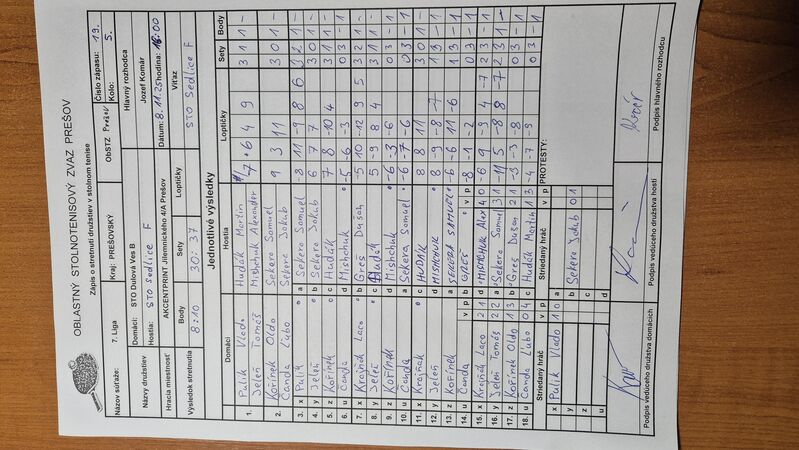 OBLASTNÝ STOLNOTENISOVÝ ZVAZ PREŠOV
Zápis o stretnutí družstiev v stolnom tenise
Číslo zápasu: 19.
Názov súťaže: 7. Liga Kraj: PREŠOVSKÝ ObSTZ Prešov Kolo: 5.
Názvy družstiev Domáci: STO Dulová Ves B Hlavný rozhodca
Hostia: STO Sedlice F Jozef Komár
Hracia miestnosť AKCENTPRINT Jilemnického 4/A Prešov Dátum: 8.11.25 hodina: 16:00
Výsledok stretnutia Body Sety Loptičky Víťaz
8:10 30:37 STO SEDLICE F
Jednotlivé výsledky
Domáci Hostia Loptičky Sety Body
1. Palik Vlado Hudák Martin
Jeleň Tomáš Mishchuk Alexander 6 4 9 3 1 1 –
2. Kořínek Oldo Sekera Samuel 9 3 11 3 0 1 –
Canda Ľubo Sekera Jakub
3. x Palik a Sekera Samuel -8 11 -9 8 6 3 2 1 –
4. y Jeleň b Sekera Jakub 6 7 7 3 0 1 –
5. z Kořínek c Hudák 7 8 -10 4 3 1 1 –
6. u Canda d Mishchuk -5 -6 -3 0 3 – 1
7. x Krajňák Laco b Greš Dušan -5 10 -12 9 5 3 2 1 –
8. y Jeleň c Hudák 5 -9 8 4 3 1 1 –
9. z Kořínek d Mishchuk -6 -3 -6 0 3 – 1
10. u Canda a Sekera Samuel -6 -7 -6 0 3 – 1
11. x Krajňák c HUDÁK 8 8 11 3 0 1 –
12. y Jeleň d MISHCHUK 8 -9 -8 -7 1 3 – 1
13. z Kořínek a SEKERA SAMUEL -6 -6 11 -6 1 3 – 1
14. u Canda b GREŠ -8 -1 -2 0 3 – 1
v p v p
15. x Krajňák Laco 2 1 d MISHCHUK Alex 4 0 -6 9 -9 4 -7 2 3 – 1
16. y Jeleň Tomáš 2 2 a Sekera Samuel 3 1 -11 5 -8 8 -7 2 3 – 1
17. z Kořínek Oldo 1 3 b Greš Dušan 2 1 -5 -3 -8 0 3 – 1
18. u Canda Ľubo 0 4 c Hudák Martin 1 3 -4 -7 -9 0 3 – 1
Striedaný hráč v p Striedaný hráč v p PROTESTY:
x Palik Vlado 1 0 a
y b Sekera Jakub 0 1
z c
u d
Podpis vedúceho družstva domácich Podpis vedúceho družstva hostí Podpis hlavného rozhodcu